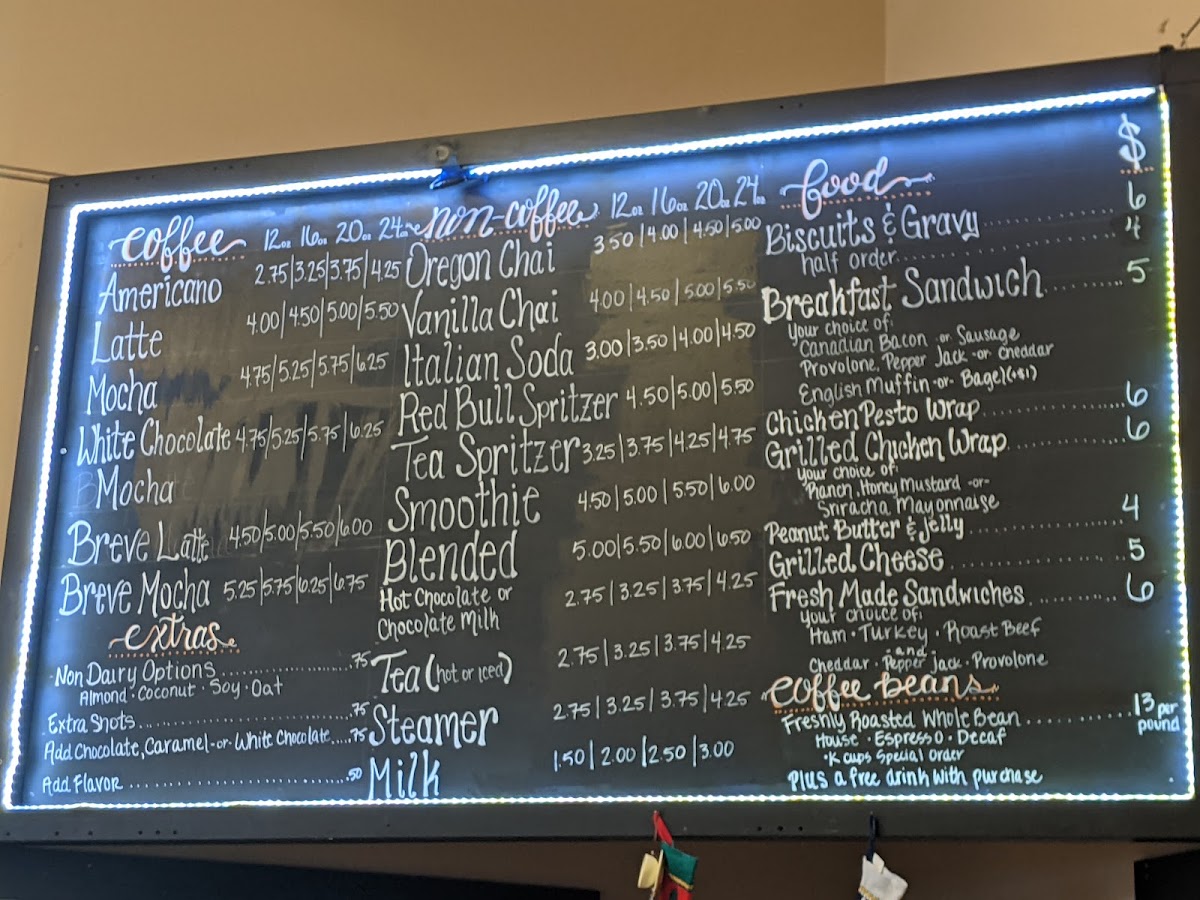 coffee 12oz 16oz 20oz 24oz
Americano 2.75|3.25|3.75|4.25
Latte 4.00|4.50|5.00|5.50
Mocha 4.75|5.25|5.75|6.25
White Chocolate 4.75|5.25|5.75|6.25
Mocha
Breve Latte 4.50|5.00|5.50|6.00
Breve Mocha 5.25|5.75|6.25|6.75
extras
Non Dairy Options .75
Almond · Coconut · Soy · Oat
Extra Shots .75
Add Chocolate, Caramel -or- White Chocolate .75
Add Flavor .50
non-coffee 12oz 16oz 20oz 24oz
Oregon Chai 3.50|4.00|4.50|5.00
Vanilla Chai 4.00|4.50|5.00|5.50
Italian Soda 3.00|3.50|4.00|4.50
Red Bull Spritzer 4.50|5.00|5.50
Tea Spritzer 3.25|3.75|4.25|4.75
Smoothie 4.50|5.00|5.50|6.00
Blended 5.00|5.50|6.00|6.50
Hot Chocolate or 2.75|3.25|3.75|4.25
Chocolate Milk
Tea (hot or iced) 2.75|3.25|3.75|4.25
Steamer 2.75|3.25|3.75|4.25
Milk 1.50|2.00|2.50|3.00
food $
Biscuits & Gravy 6
half order 4
Breakfast Sandwich 5
Your choice of:
Canadian Bacon -or- Sausage
Provolone, Pepper Jack -or- Cheddar
English Muffin -or- Bagel(+$1)
Chicken Pesto Wrap 6
Grilled Chicken Wrap 6
Your choice of:
Ranch, Honey Mustard -or-
Sriracha Mayonnaise
Peanut Butter & Jelly 4
Grilled Cheese 5
Fresh Made Sandwiches 6
your choice of:
Ham · Turkey · Roast Beef
and
Cheddar · Pepper jack · Provolone
coffee beans
Freshly Roasted Whole Bean 13 per pound
House · Espresso · Decaf
·K cups Special Order
Plus a free drink with purchase